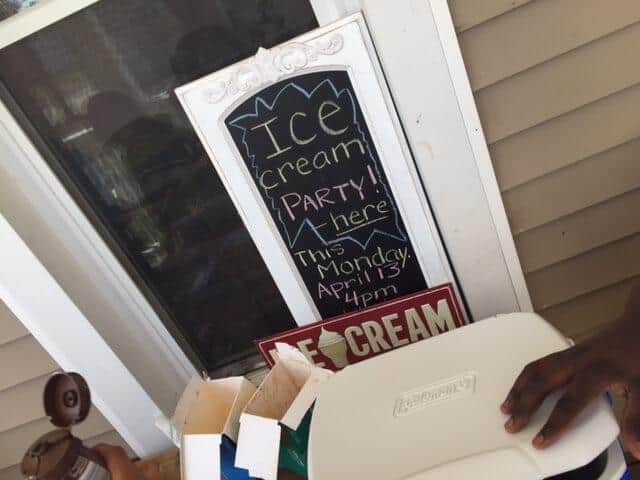 Ice
cream
PARTY!
here
This
Monday.
April 13
4pm
ICE CREAM